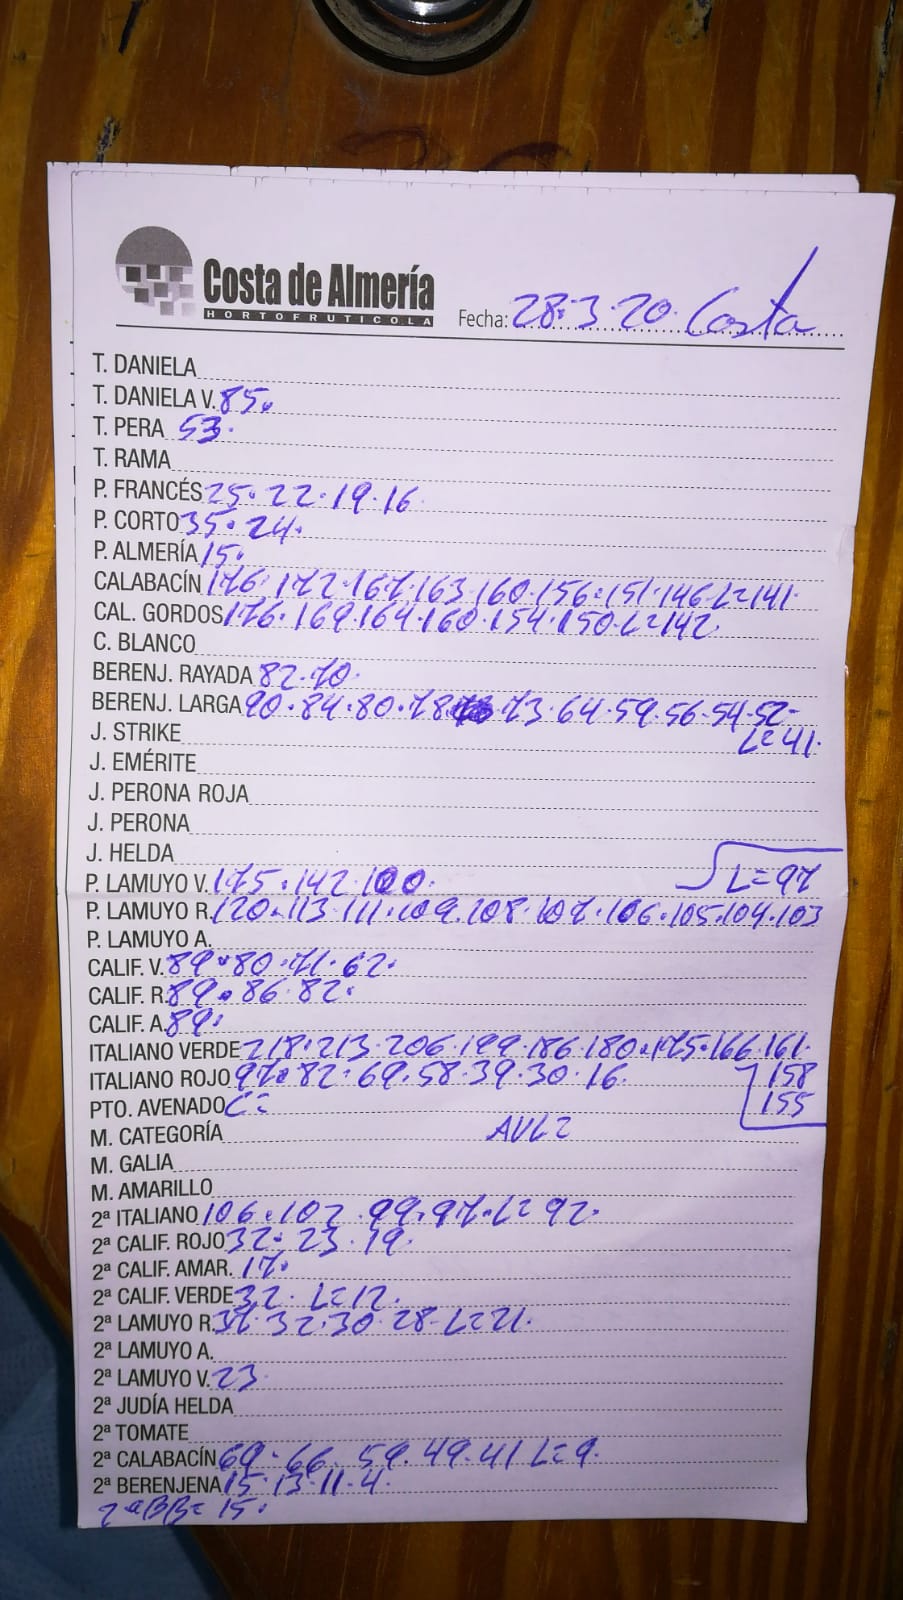 Costa de Almería
HORTOFRUTICOLA
Fecha: 28.3.20. Costa
T. DANIELA
T. DANIELA V. 85.
T. PERA 53.
T. RAMA
P. FRANCÉS 25. 22. 19. 16
P. CORTO 35. 24.
P. ALMERÍA 15.
CALABACÍN 176. 172. 167. 163. 160. 156. 151. 146. L=141.
CAL. GORDOS 176. 169. 164. 160. 154. 150. L=142.
C. BLANCO
BERENJ. RAYADA 82. 70.
BERENJ. LARGA 90. 84. 80. 78. 73. 64. 59. 56. 54. 52-
J. STRIKE L=41.
J. EMÉRITE
J. PERONA ROJA
J. PERONA
J. HELDA
P. LAMUYO V. 175. 142. 100. L=97
P. LAMUYO R. 120. 113. 111. 109. 108. 107. 106. 105. 104. 103
P. LAMUYO A.
CALIF. V. 89. 80. 71. 62.
CALIF. R. 89. 86. 82.
CALIF. A. 89.
ITALIANO VERDE 218. 213. 206. 199. 186. 180. 175. 166. 161.
ITALIANO ROJO 97. 82. 69. 58. 39. 30. 16. 158
PTO. AVENADO C= 155
M. CATEGORÍA
M. GALIA
M. AMARILLO
2ª ITALIANO 106. 102. 99. 97. L=92.
2ª CALIF. ROJO 32. 23. 19.
2ª CALIF. AMAR. 17.
2ª CALIF. VERDE 32. L=12.
2ª LAMUYO R. 37. 32. 30. 28. L=21.
2ª LAMUYO A.
2ª LAMUYO V. 23.
2ª JUDÍA HELDA
2ª TOMATE
2ª CALABACÍN 69. 66. 59. 49. 41 L=9.
2ª BERENJENA 15. 13. 11. 4.
2ªBB= 15.